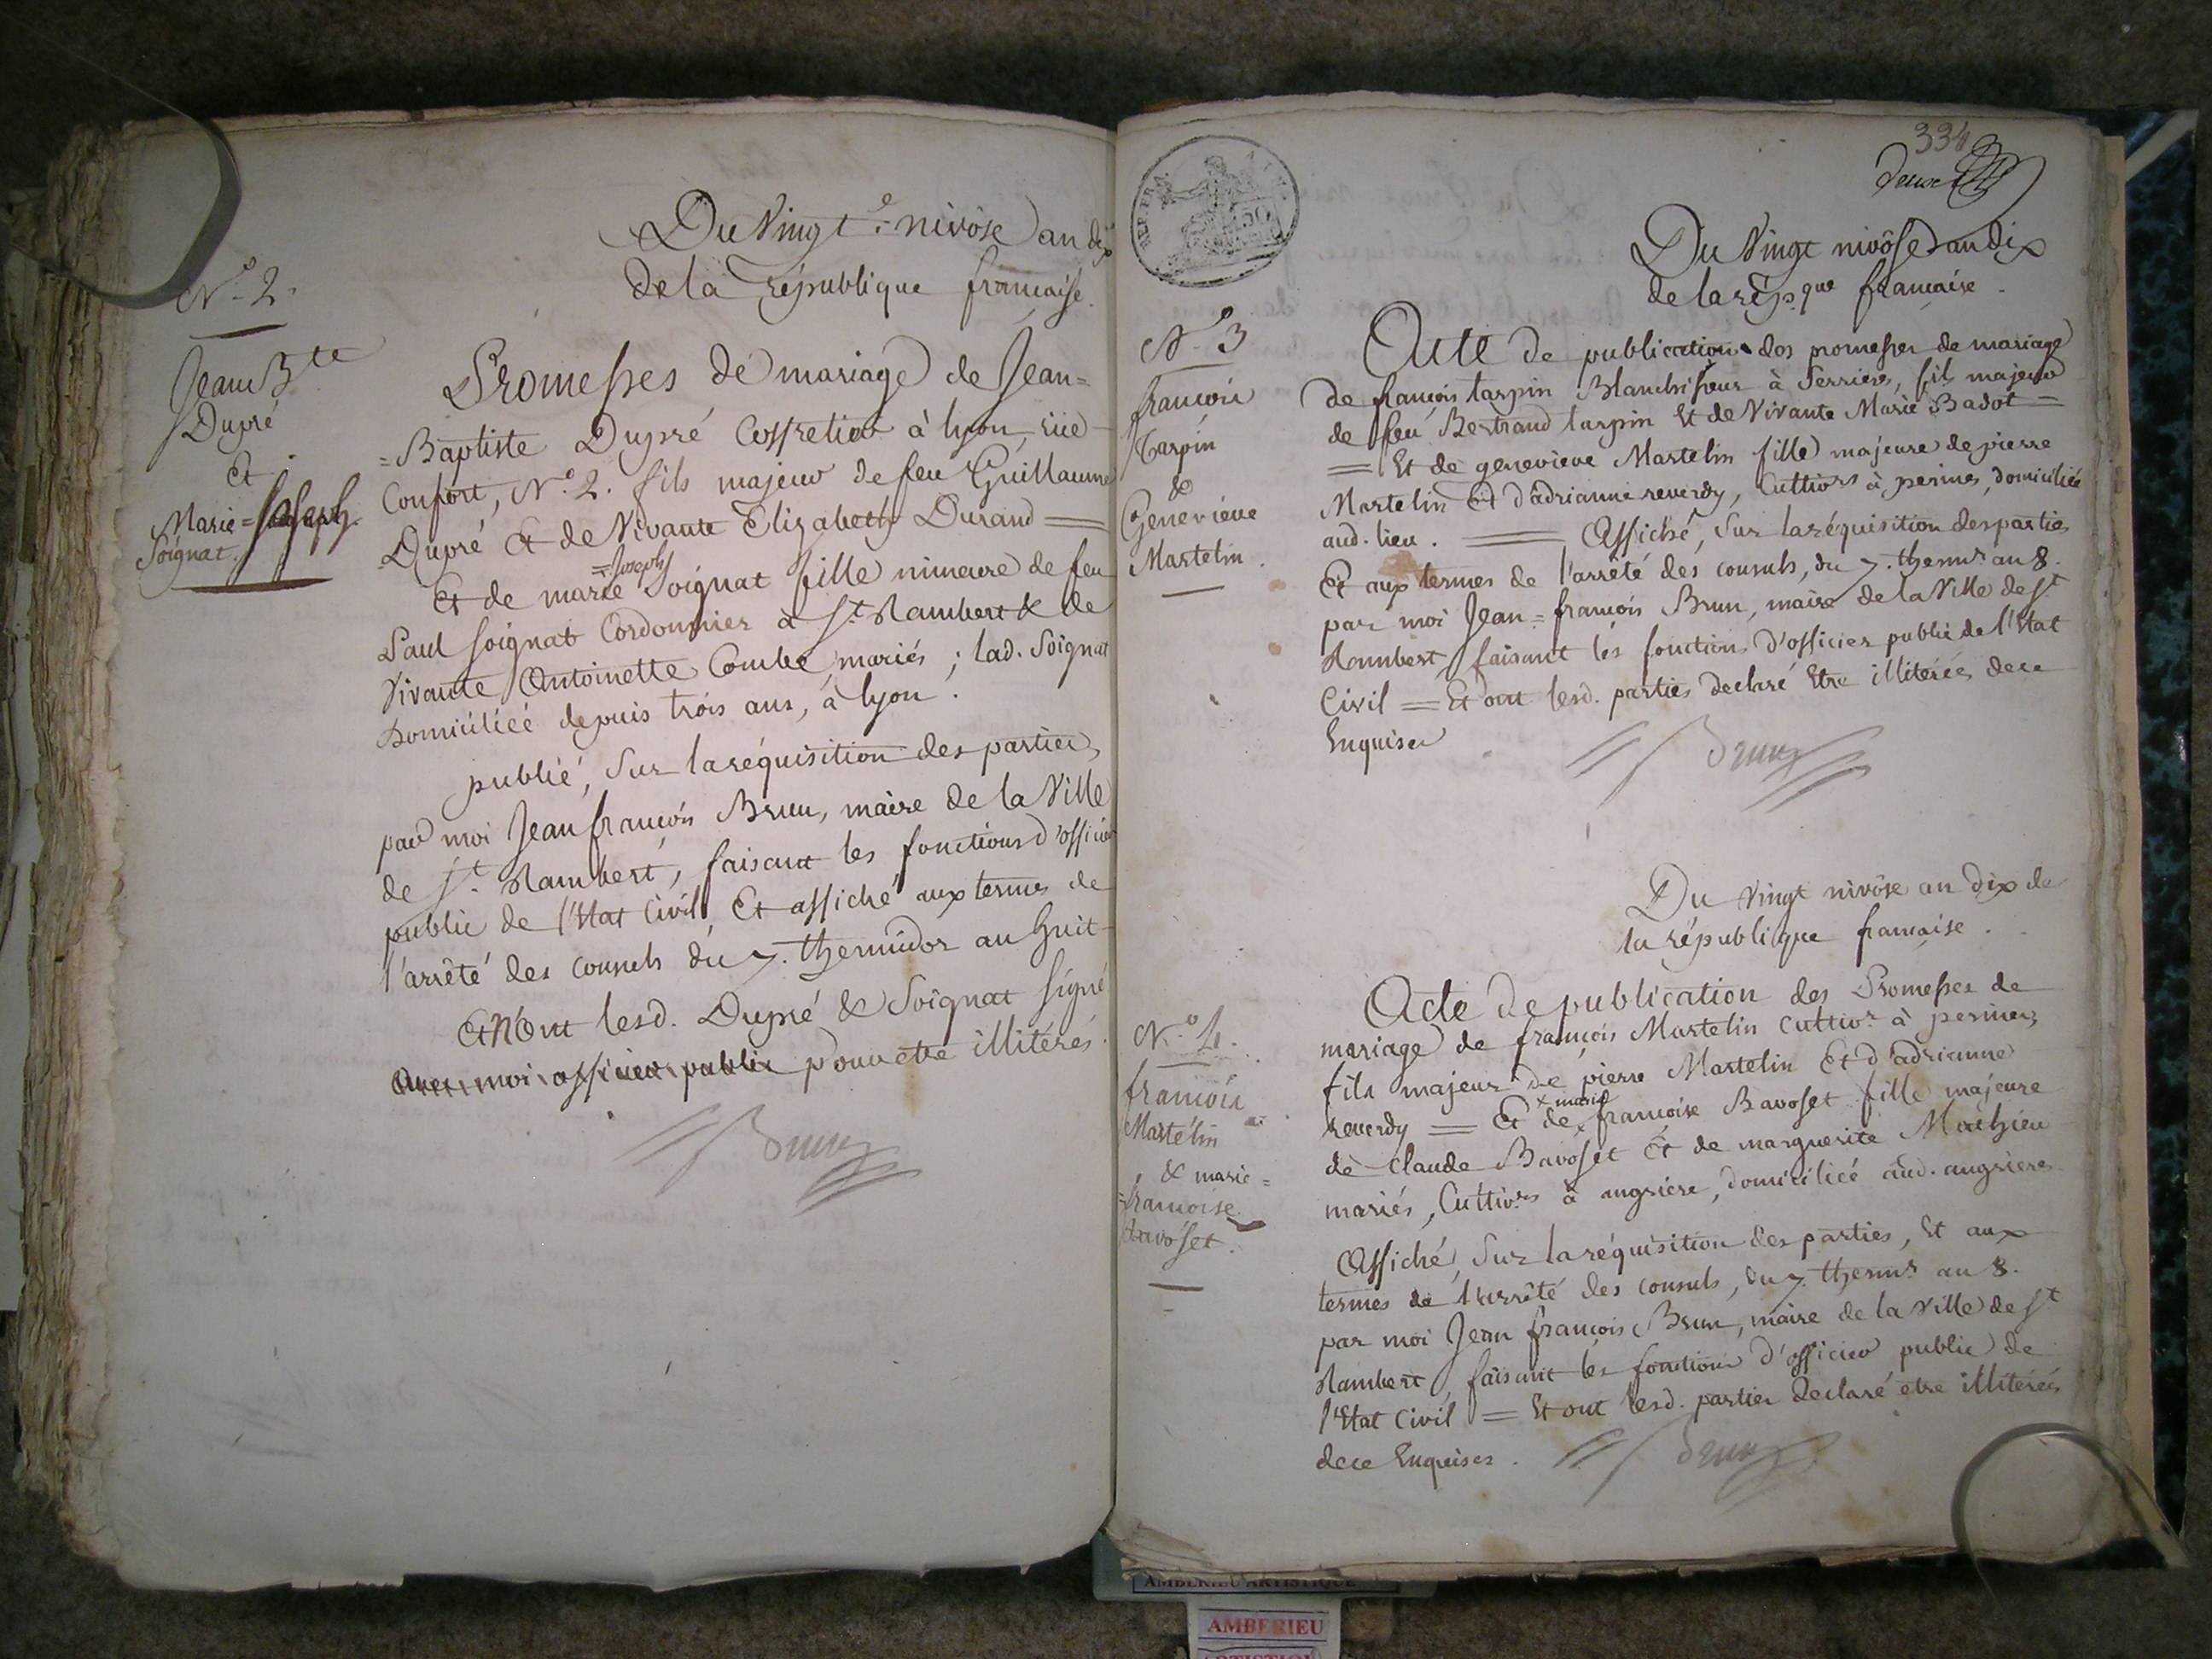 Du Vingt e nivôse an dix
de la république française.
N.o 2.
Jean Bte
Dupré
Et
Marie=Joseph
Soignat.
Promesses de mariage de Jean=
=Baptiste Dupré Coffretier à lyon, rüe
Confort, N.o 2. fils majeur de feu Guillaume
Dupré Et de Vivante Elizabeth Durand =
=Joseph
Et de marie Soignat fille mineure de feu
Paul Soignat Cordonnier à St. Rambert & de
Vivante Antoinette Combe, mariés ; lad. Soignat
Domiciliée depuis trois ans, à lyon.
publié, Sur la réquisition des parties,
par moi Jean françois Brun, maire de la Ville
de St. Rambert, faisant les fonctions d'officier
public de l'Etat Civil, Et affiché aux termes de
l'arrêté des consuls du 7. thermidor an huit
Et N'ont lesd. Dupré & Soignat signé
avec moi officier public pour être illitérés.
Brun
334
deux
REP. FRA.
Du Vingt nivôse an dix
de la répque française.
N.o 3
françois
Tarpin
&
Geneviève
Martelin.
Acte de publication des promesses de mariage
de françois tarpin Blanchisseur à Serrieres, fils majeur
de feu Bertrand tarpin Et de Vivante Marie Badot =
= Et de geneviève Martelin fille majeure de pierre
Martelin Et d'adrianne reverdy, Cultivrs à perines, domiciliée
aud. lieu. = Affiché, Sur la réquisition des parties
Et aux termes de l'arrêté des consuls, du 7. thermr an 8.
par moi Jean=françois Brun, maire de la Ville de St
Rambert, faisant les fonctions d'officier public de l'Etat
Civil = Et ont lesd. parties declaré Etre illitérées de ce
Enquises
Brun
Du Vingt nivôse an dix de
la république française.
N.o 4.
françois
Martelin
& marie=
=françoise
Bavoset.
Acte de publication des Promesses de
mariage de françois Martelin cultivr à perines,
fils majeur de pierre Martelin Et d'adrianne
x marie
reverdy = Et de x françoise Bavoset fille majeure
de Claude Bavoset Et de marguerite Mathieu
mariés, Cultivrs à angriere, domiciliée aud. angrieres
Affiché, Sur la réquisition des parties, Et aux
termes de l'arrêté des consuls, du 7. thermr an 8.
par moi Jean françois Brun, maire de la Ville de St
Rambert, faisant les fonctions d'officier public de
l'Etat Civil = Et ont lesd. parties declaré etre illitérés
de ce Enquises.
Brun
AMBERIEU ARTISTIQUE
AMBERIEU